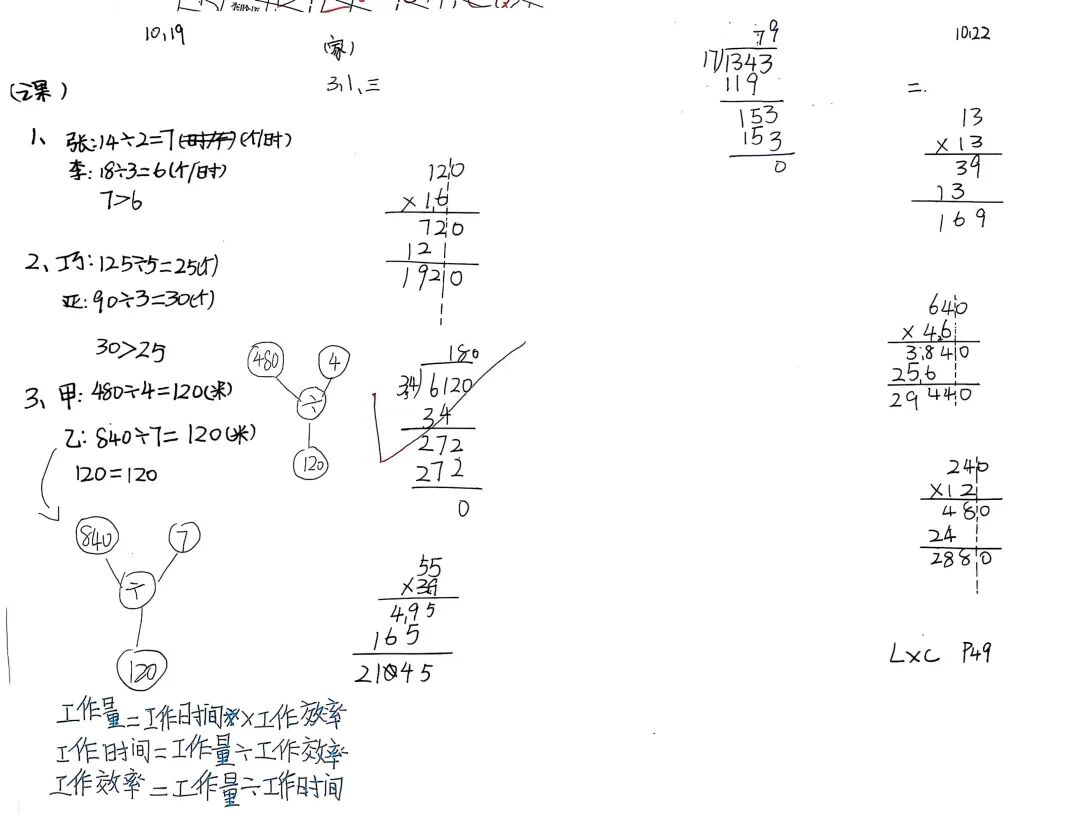 10,19
(家)
3,1、三
(云课)
1、张:14÷2=7(个/时)
李:18÷3=6(个/时)
7>6
2、巧:125÷5=25(个)
亚:90÷3=30(个)
30>25
3、甲:480÷4=120(米)
乙:840÷7=120(米)
120=120
480 4
÷
120
840 7
÷
120
工作量=工作时间×工作效率
工作时间=工作量÷工作效率
工作效率=工作量÷工作时间
120
×1,6
720
12
1920
180
34)6120
34
272
272
0
55
×39
4,95
165
2145
79
17)1343
119
153
153
0
10,22
二.
13
×13
39
13
169
640
×4,6
3,840
25,6
29440
240
×12
480
24
2880
LXC P49